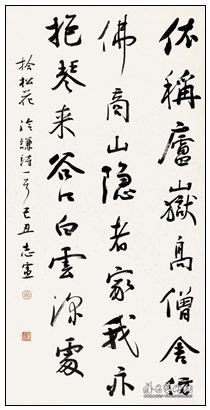 依稀廬嶽高僧舍彷
佛商山隐者家我亦
抱琴来谷口白雲深處
拾松花 冷謙詩一首 己丑 志憲